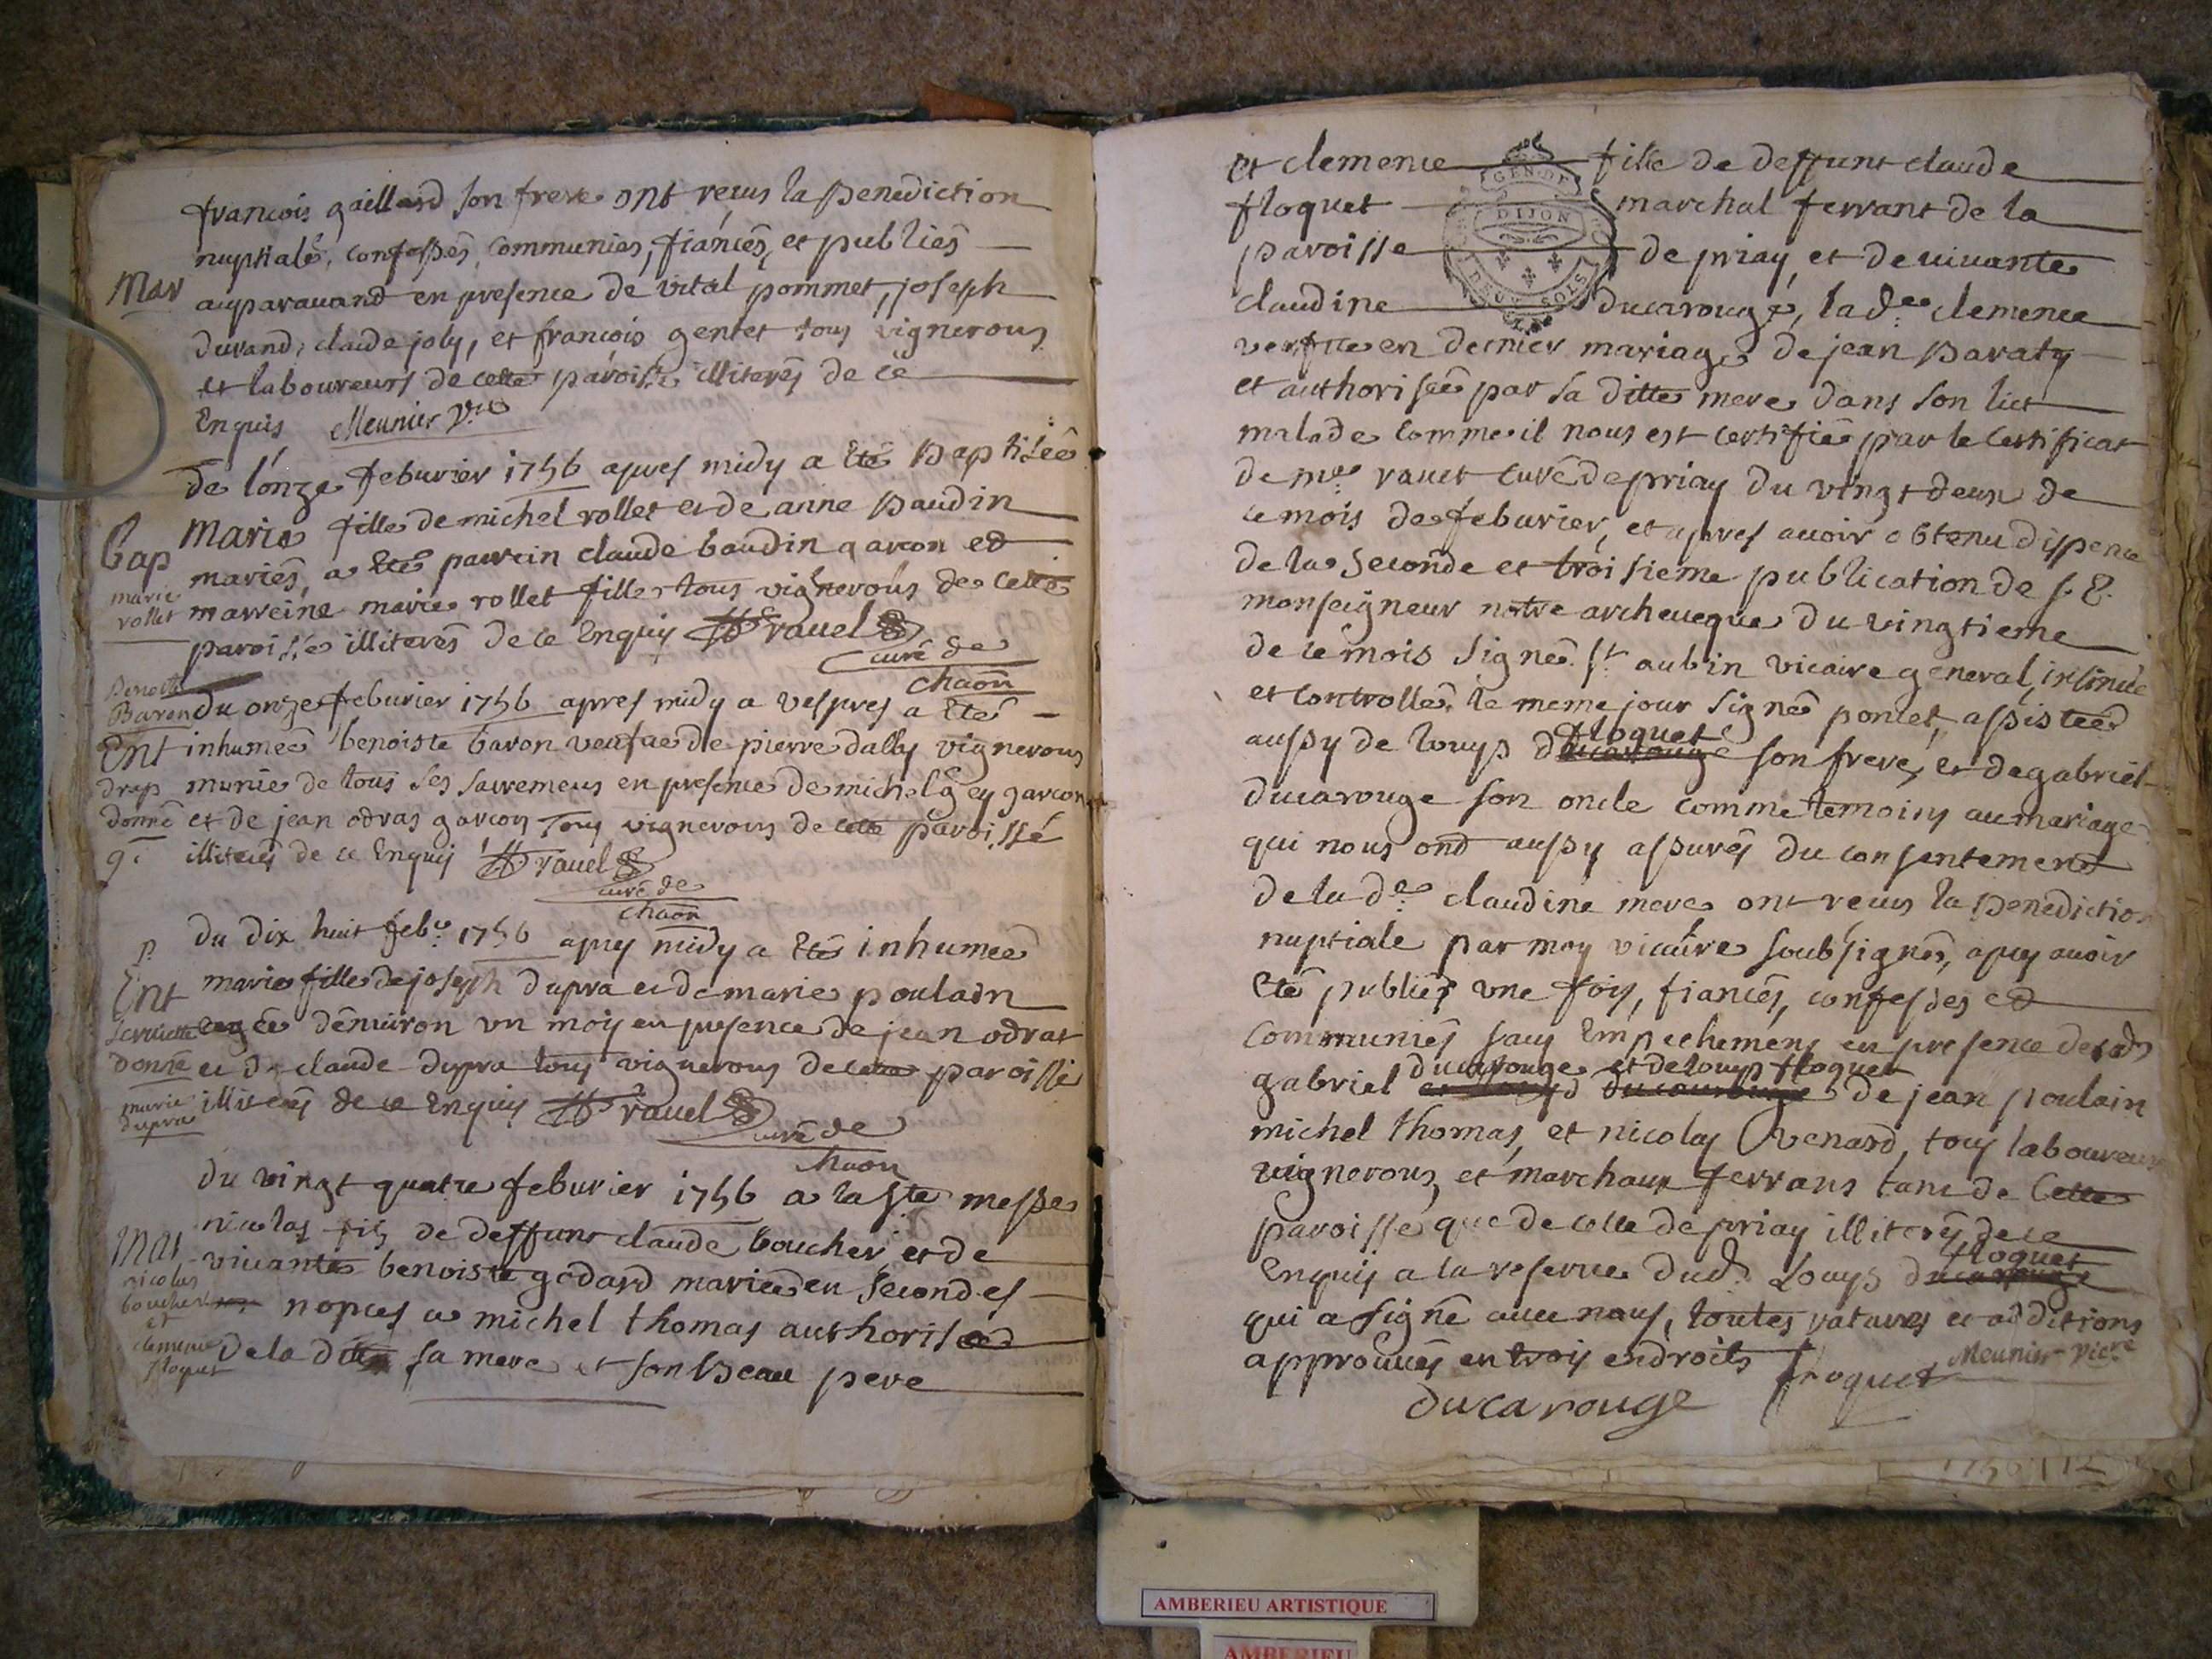 francois gaillard son frere ont recus la Benediction
nuptiale, confessés, communies, fiancés, et publiés
Mar
auparauand en presence de vital pommet, joseph
durand, claude joly, et francois gentet tous vignerons
et laboureurs de cette paroisse illiterés de ce
Enquis Meunier Vre
de l'onze feburier 1756 apres midy a Eté Baptisée
Bap
marie rollet
Marie fille de michel rollet et de anne Baudin
mariés, a Eté parrein claude baudin garcon et
marreine marie rollet fille tous vignerons de cette
paroisse illiterés de ce Enquis ravel
curé de
chaon
Benoite
Baron
du onze feburier 1756 apres midy a Vespres a Eté
Ent
inhumée benoiste baron veufue de pierre dally vignerons
drap
munie de tous ses sacremens en presence de michel gey garcon
donné
et de jean odras garcon tous vignerons de cette paroisse
illiterés de ce Enquis ravel
curé de
chaon
du dix huit febr 1756 apres midy a Eté inhumée
p.
Ent
marie fille de joseph dupra et de marie pouladn
seruiette
agée denuiron un mois en presence de jean odrat
donné
et de claude dupra tous vignerons de cette paroisse
marie
dupra
illiterés de ce Enquis ravel
curé de
chaon
du vingt quatre feburier 1756 a la Ste messe
Mar
nicolas fils de deffunt claude boucher et de
nicolas
vivante benoiste godard mariée en secondes
boucher
et
nopces a michel thomas authorisé
clemence
floquet
de la ditte sa mere et son Beau pere
et clemence fille de deffunt claude
floquet marchal ferrant de la
paroisse de priay et de uiuante
claudine ducarouge, la d.ee clemence
veufue en dernier mariage de jean Baraty
et authorisée par sa ditte mere dans son lict
malade comme il nous est certifié par le certificat
de mre ravet curé de priay du vingt deux de
ce mois de feburier, et apres auoir obtenu dispence
de la seconde et troisieme publication de s. E.
monseigneur notre archeueque du vingtieme
de ce mois signé St aubin vicaire general, insinué
et controllé le meme jour signé poncet, assistée
aussy de louys ducarouge floquet son frere, et de gabriel
ducarouge son oncle comme temoins au mariage
qui nous ont aussy assurés du consentement
de la d.e claudine mere ont recus la Benediction
nuptiale par moy vicaire soubsigné, apres auoir
Eté publiés une fois, fiancés, confesses et
communiés sans Empechemens en presence desd.
gabriel ducarouge et de louys floquet de jean poulain
michel thomas, et nicolas venard, tous laboureurs
vignerons, et marchaux ferrans tant de cette
paroisse que de celle de priay illiterés de ce
Enquis a la reserue dud. Louys ducarouge floquet
qui a signé auec nous, toutes ratures et additions
approuuées en trois endroits floquet Meunier Vicre
ducarouge
GEN. DE
DIJON
DEUX SOLS
1756
AMBERIEU ARTISTIQUE
AMBERIEU